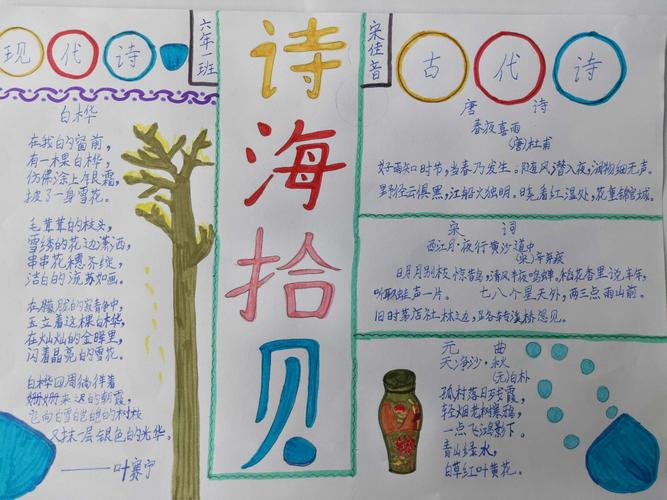 现代诗
六年一班
白桦
在我的窗前,
有一棵白桦,
仿佛涂上银霜,
披了一身雪花。
毛茸茸的枝头,
雪绣的花边潇洒,
串串花穗齐绽,
洁白的流苏如画。
在朦胧的寂静中,
玉立着这棵白桦,
在灿灿的金晖里,
闪着晶亮的雪花。
白桦四周徜徉着
姗姗来迟的朝霞,
它向白雪皑皑的树枝
又抹一层银色的光华。
——叶赛宁
诗海拾贝
宋佳音
古代诗
唐 诗
春夜喜雨
(唐)杜甫
好雨知时节,当春乃发生。随风潜入夜,润物细无声。
野径云俱黑,江船火独明。晓看红湿处,花重锦官城。
宋 词
西江月·夜行黄沙道中
(宋)辛弃疾
明月别枝惊鹊,清风半夜鸣蝉,稻花香里说丰年,
听取蛙声一片。 七八个星天外,两三点雨山前。
旧时茅店社林边,路转溪桥忽见。
元 曲
天净沙·秋
(元)白朴
孤村落日残霞,
轻烟老树寒鸦,
一点飞鸿影下。
青山绿水,
白草红叶黄花。